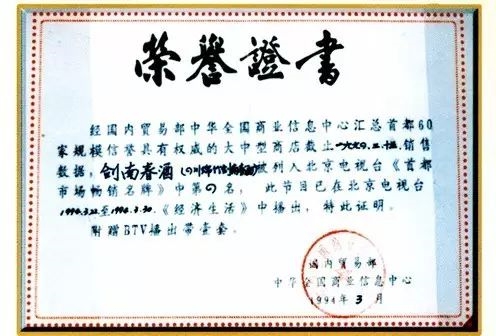 荣誉證書
经国内贸易部中华全国商业信息中心汇总首都60
家规模信誉具有权威的大中型商店截止 销售
数据，剑南春酒 被列入北京电视台《首都
市场畅销名牌》中第 名，此节目已在北京电视台
1994.3.22至1994.3.30.《经济生活》中播出，特此证明。
附赠BTV播出带壹套。
国内贸易部
中华全国商业信息中心
1994年3月